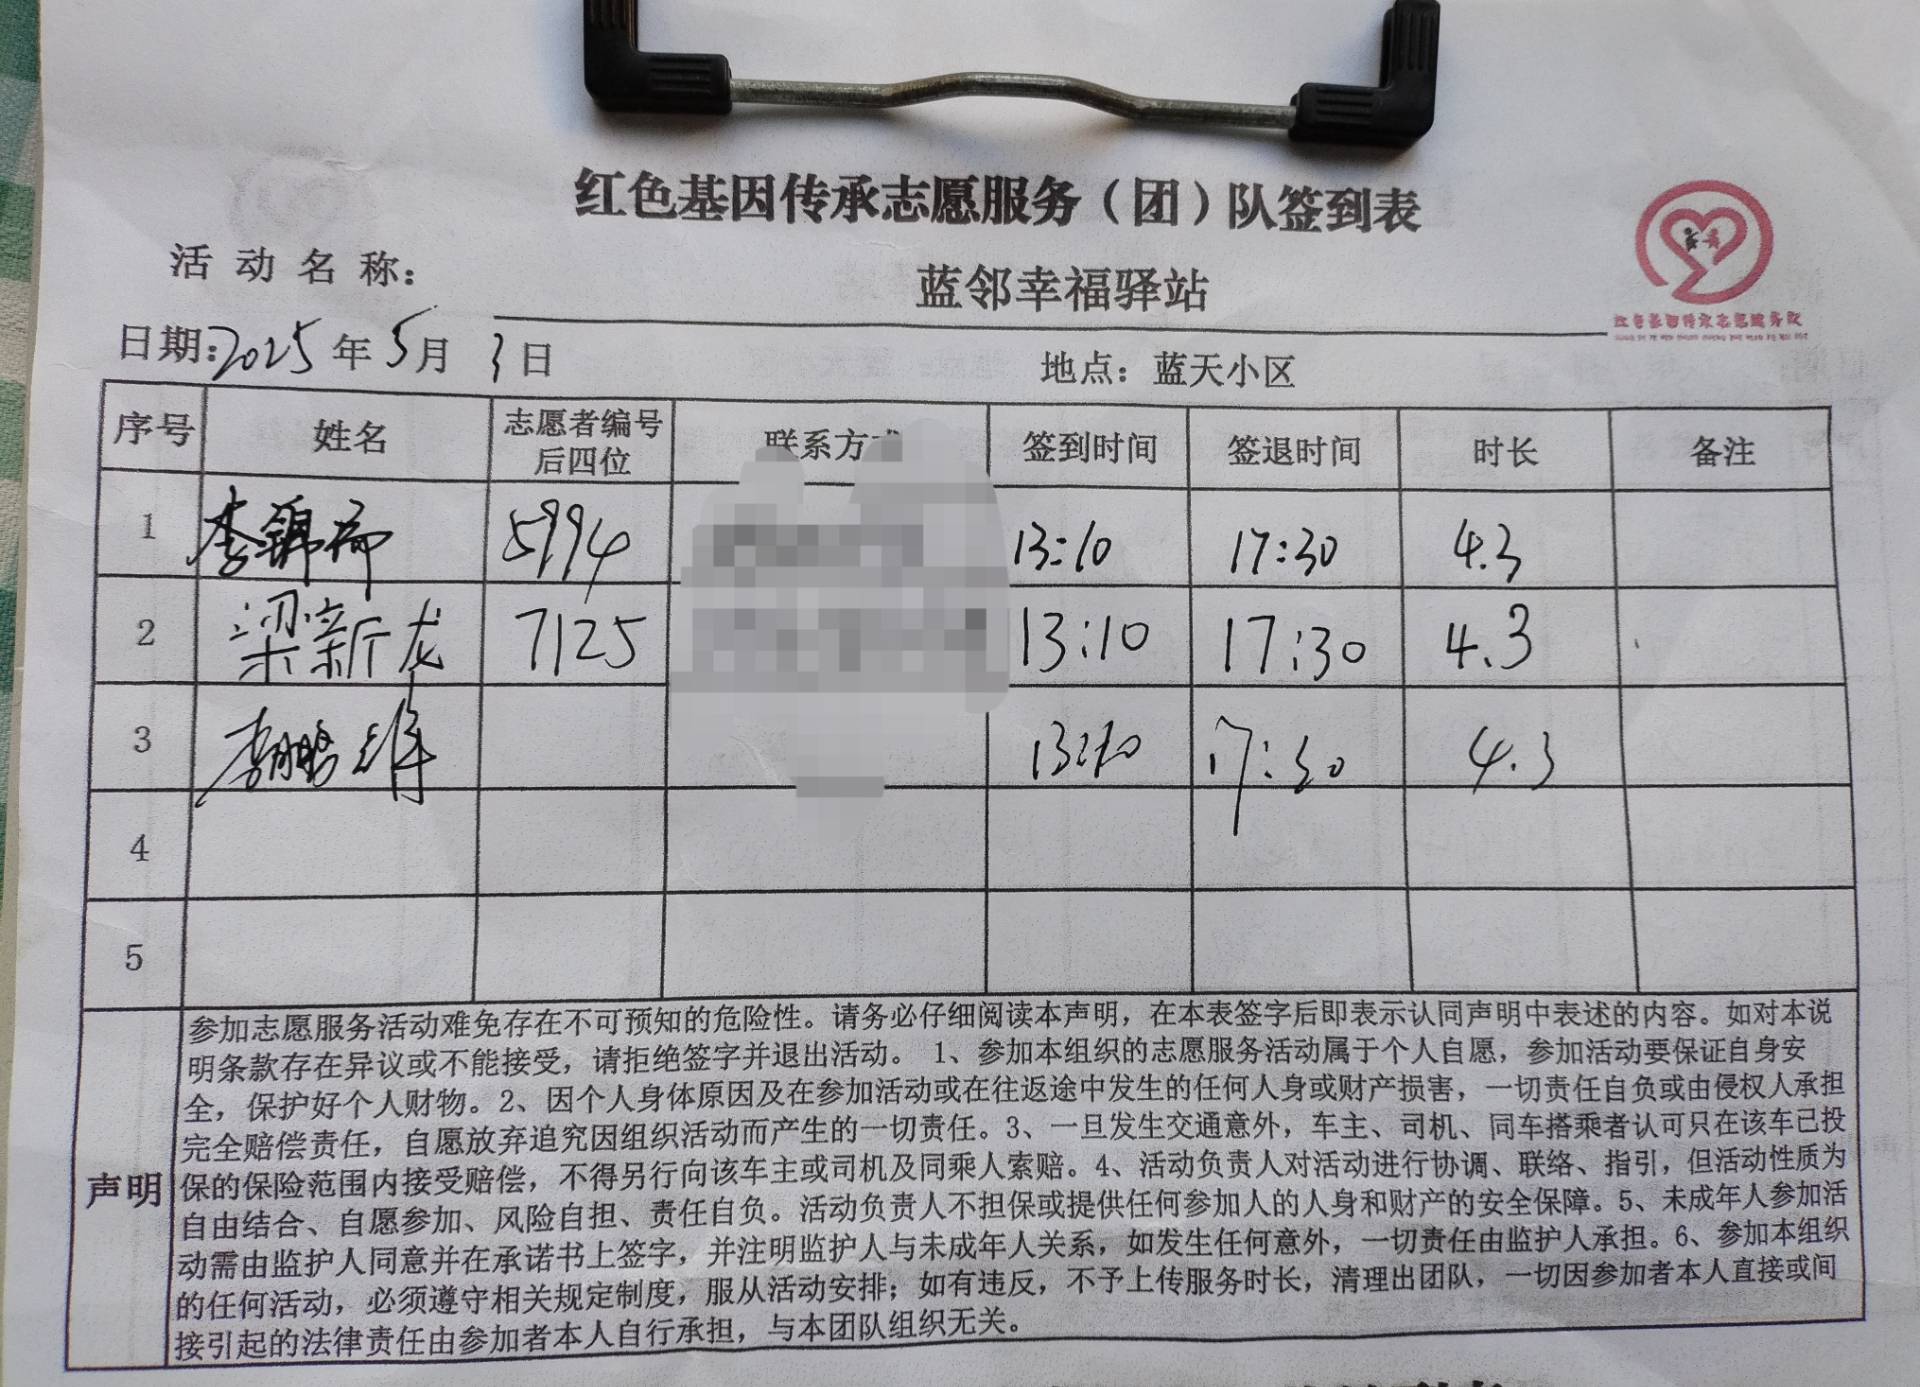 红色基因传承志愿服务（团）队签到表
活动名称： 蓝邻幸福驿站
红色基因传承志愿服务队
日期：2025年5月3日 地点：蓝天小区
序号 姓名 志愿者编号后四位 联系方式 签到时间 签退时间 时长 备注
1 李锦 5994 13:10 17:30 4.3
2 梁新龙 7125 13:10 17:30 4.3
3 李鹏 13:10 17:30 4.3
4
5
声明
参加志愿服务活动难免存在不可预知的危险性。请务必仔细阅读本声明，在本表签字后即表示认同声明中表述的内容。如对本说
明条款存在异议或不能接受，请拒绝签字并退出活动。 1、参加本组织的志愿服务活动属于个人自愿，参加活动要保证自身安
全，保护好个人财物。2、因个人身体原因及在参加活动或在往返途中发生的任何人身或财产损害，一切责任自负或由侵权人承担
完全赔偿责任，自愿放弃追究因组织活动而产生的一切责任。3、一旦发生交通意外，车主、司机、同车搭乘者认可只在该车已投
保的保险范围内接受赔偿，不得另行向该车主或司机及同乘人索赔。4、活动负责人对活动进行协调、联络、指引，但活动性质为
自由结合、自愿参加、风险自担、责任自负。活动负责人不担保或提供任何参加人的人身和财产的安全保障。5、未成年人参加活
动需由监护人同意并在承诺书上签字，并注明监护人与未成年人关系，如发生任何意外，一切责任由监护人承担。6、参加本组织
的任何活动，必须遵守相关规定制度，服从活动安排；如有违反，不予上传服务时长，清理出团队，一切因参加者本人直接或间
接引起的法律责任由参加者本人自行承担，与本团队组织无关。